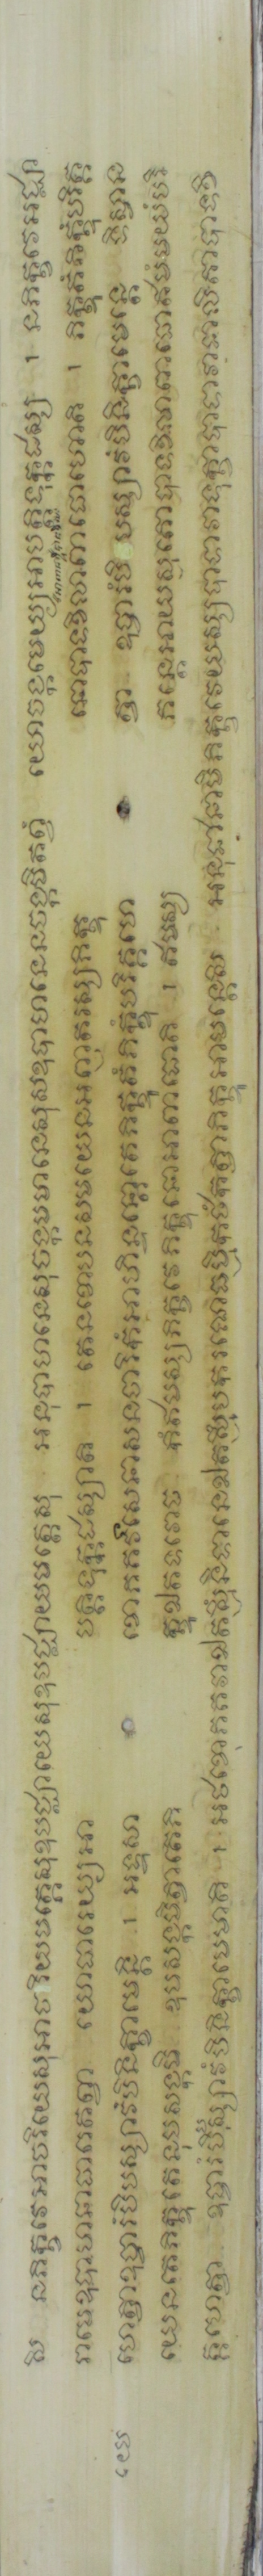 សិ នភិក្ខវេអាចរិយេសុអាចរិយមត្តេសុឧបជ្ឈាយេសុឧបជ្ឈាយមត្តេសុ អនុបាហនេសុចង្កមមានេសុសឧបាហនេនចង្កមិតព្វំ យោចង្កមេយ្យអាបត្តិទុក្កដស្ស ។ នភិក្ខវេអជ្ឈា
រាមេឧបាហនាធារេតព្វា យោធារេយ្យអាបត្តិទុក្កដស្សាតិ ។ តេនខោបនសមយេនអញតរស្សភិក្ខុនោបាទខីលាពាធោហោតិ ។ ភិក្ខូតំភិក្ខុំបរិគ្គ
យេ ហេត្វាឧច្ចារំបិបស្សាវំបិនិក្ខាមេន្តិ ។ អទ្ទសាខោភគវាសេនាសនចារិកំអាហិន្ទន្តោតេភិក្ខូតំភិក្ខុំបរិគ្គហេត្វា ឧច្ចារំបិបស្សាវំបិនិក្ខាមេន្តេ ទិស្វាន
យេនតេភិក្ខូតេនុបសង្កមិ ឧបសង្កមិត្វាតេភិក្ខូឯតទវោច កិំឥមស្សភិក្ខវេភិក្ខុនោអាពាធោតិ ។ ឥមស្សភន្តេអាយស្មតោបាទខីលាពាធោឥមំមយំបរិ
គ្គហេត្វា ឧច្ចារំបិបស្សាវំបិនិក្ខាមេមាតិ ។ អថខោភគវាឯតស្មិំនិទានេឯតស្មិំបករណេធម្មិកថំកត្វាភិក្ខូអាមន្តេសិ អនុជានាមិភិក្ខវេយស្សបាទាវាទុក្ខាបាទាវាផាលិតាបាទខី